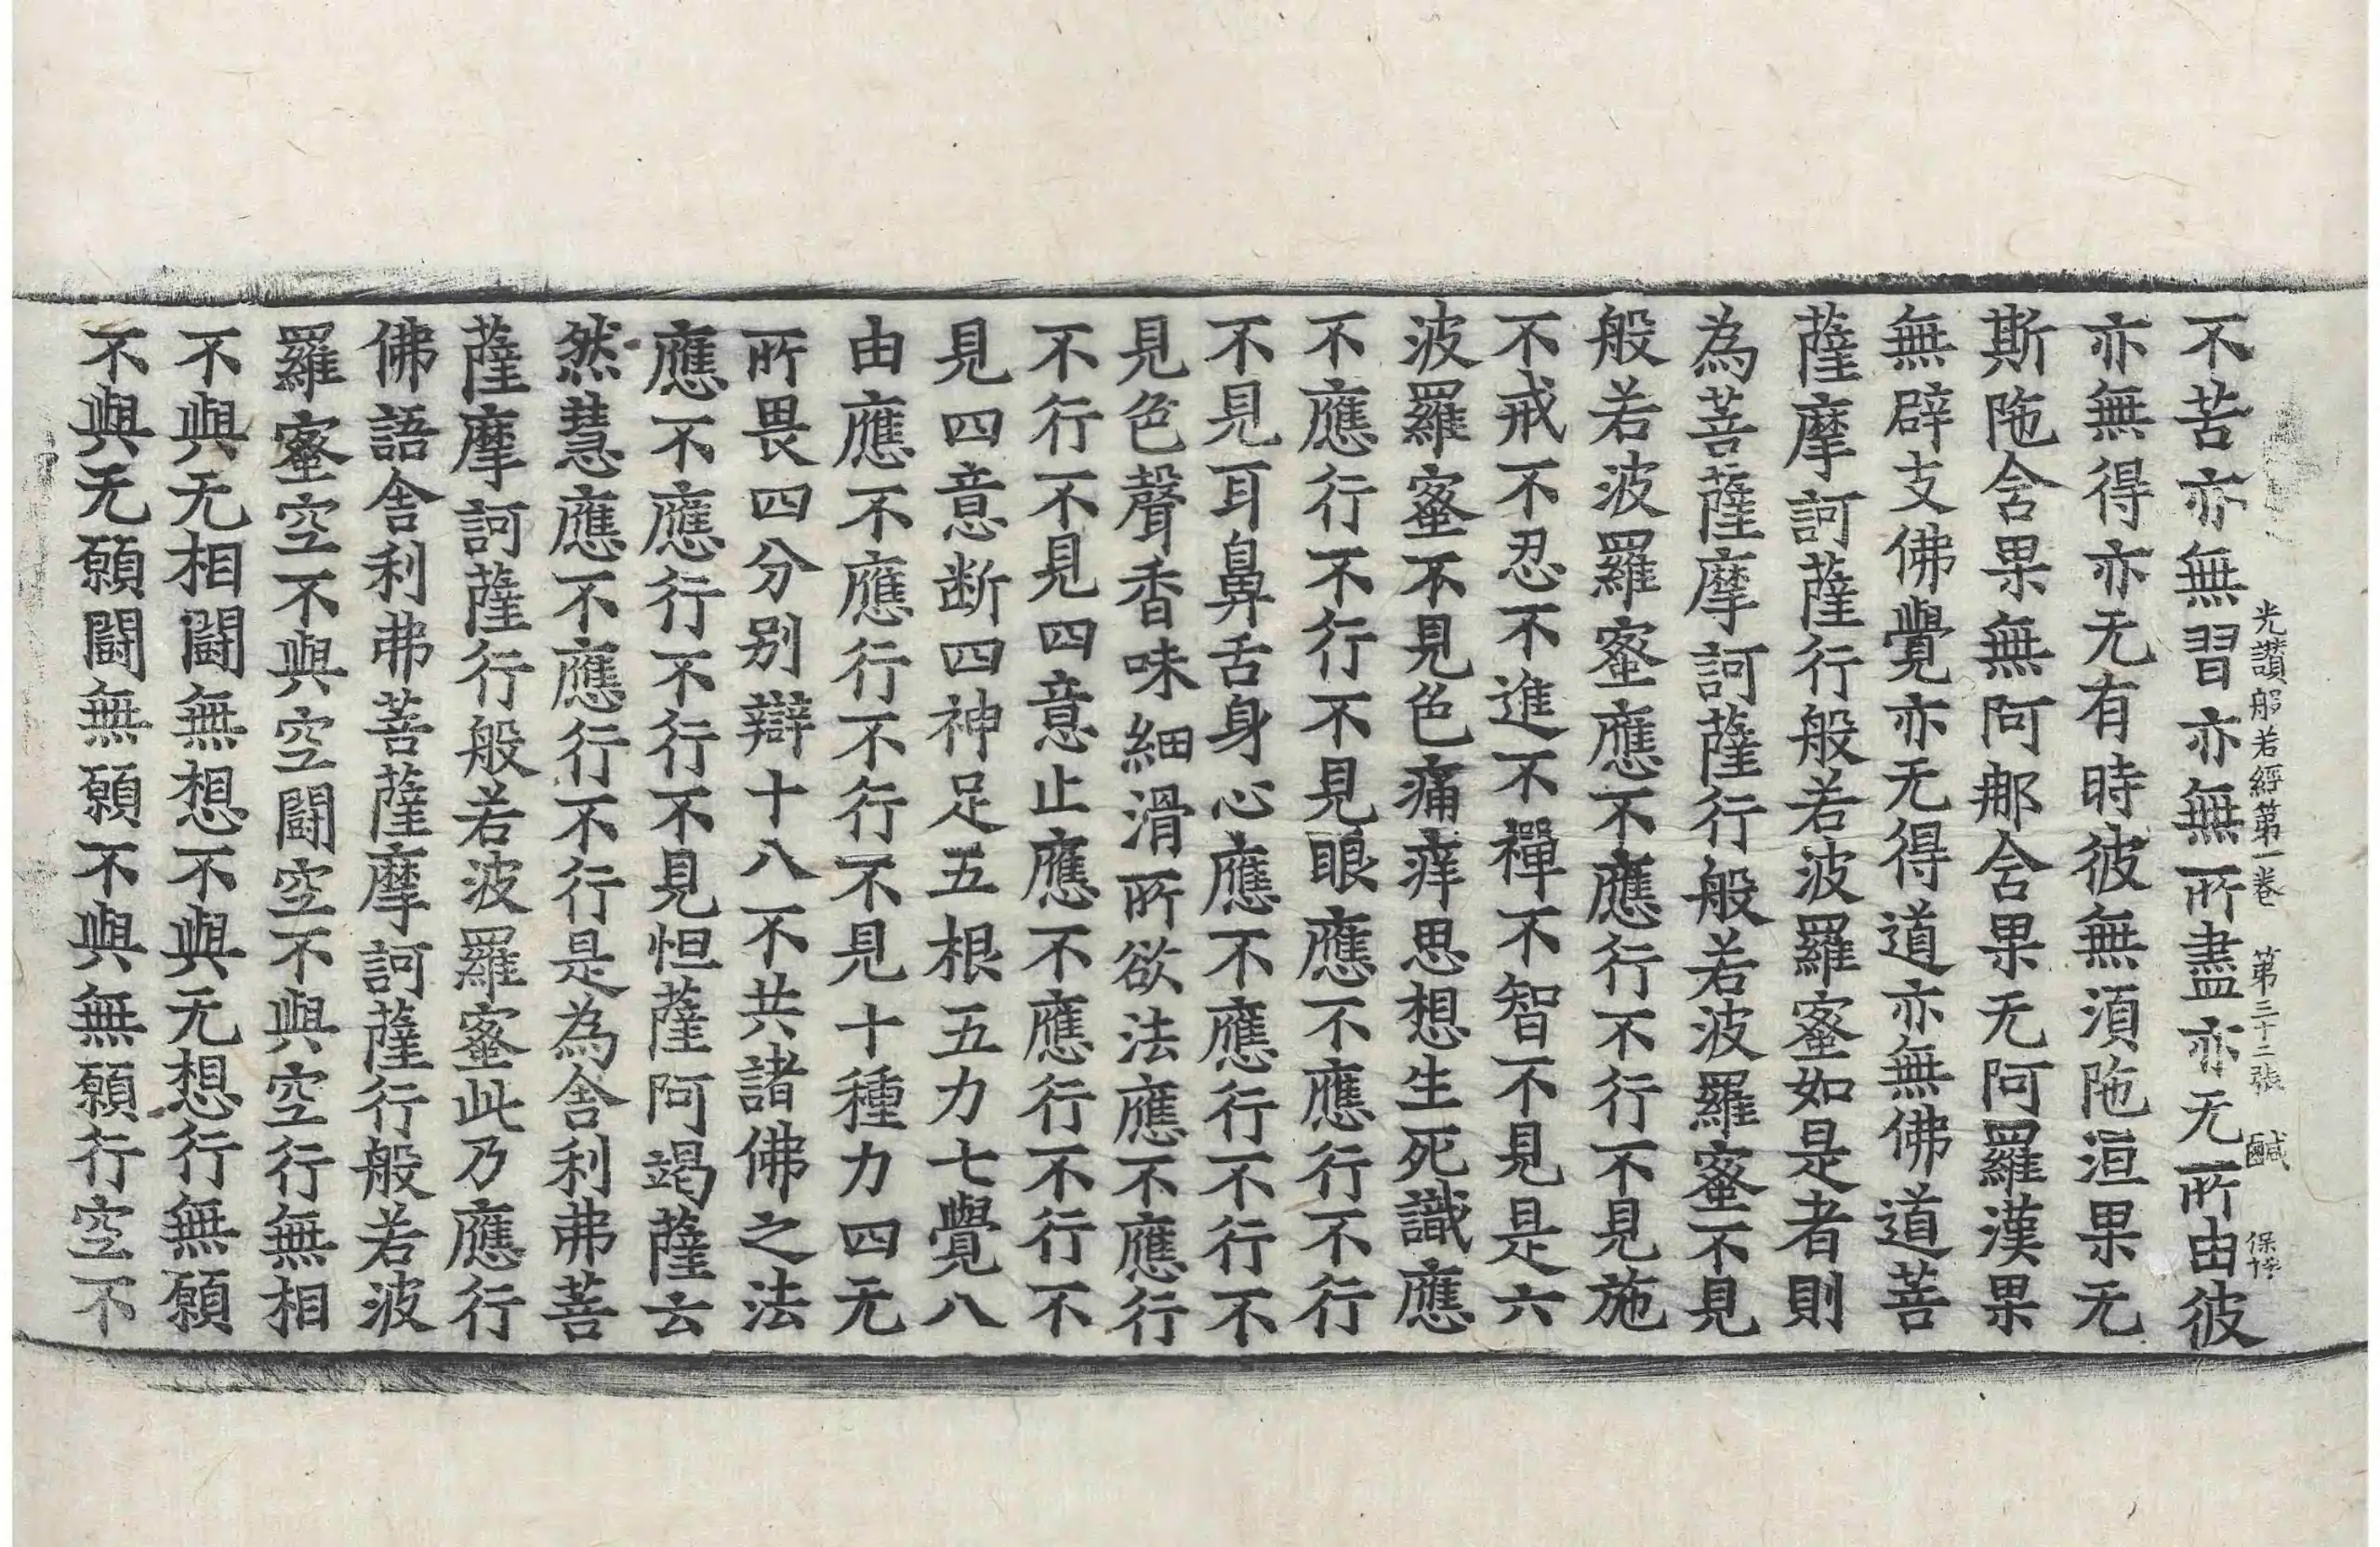 光讃般若經第一卷　第三十二張　鹹
不苦亦無習亦無所盡亦无所由彼
亦無得亦无有時彼無湏陁洹果无
斯陁含果無阿那含果无阿羅漢果
無辟支佛覺亦无得道亦無佛道菩
薩摩訶薩行般若波羅蜜如是者則
為菩薩摩訶薩行般若波羅蜜不見
般若波羅蜜應不應行不行不見施
不戒不忍不進不禪不智不見是六
波羅蜜不見色痛痒思想生死識應
不應行不行不見眼應不應行不行
不見耳鼻舌身心應不應行不行不
見色聲香味細滑所欲法應不應行
不行不見四意止應不應行不行不
見四意断四神足五根五力七覺八
由應不應行不行不見十種力四无
所畏四分別辯十八不共諸佛之法
應不應行不行不見怛薩阿竭薩云
然慧應不應行不行是為舍利弗菩
薩摩訶薩行般若波羅蜜此乃應行
佛語舍利弗菩薩摩訶薩行般若波
羅蜜空不與空闘空不與空行無相
不與无相闘無想不與无想行無願
不與无願闘無願不與無願行空不